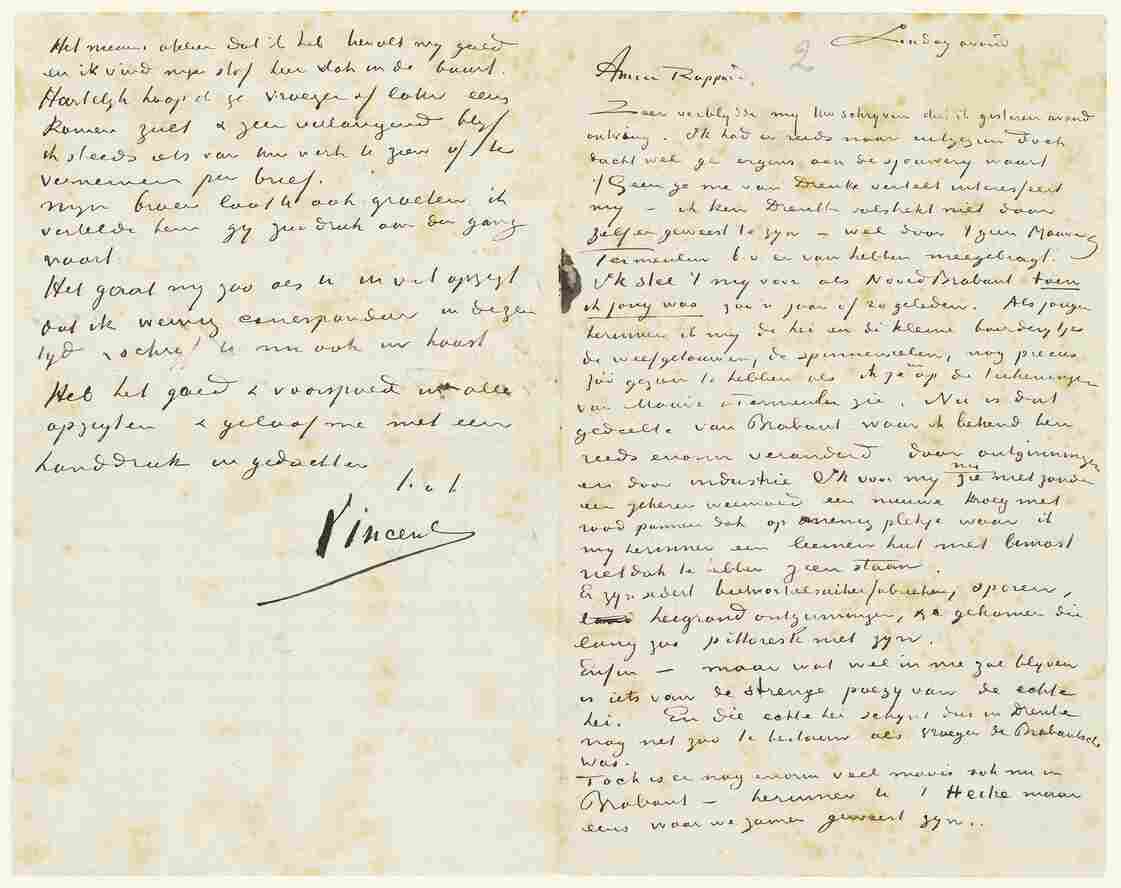 Het nieuwe atelier dat ik heb bevalt my goed
en ik vind myn stof hier vlak in de buurt.
Hartelyk hoop ik ge vroeger of later eens
komen zult & zeer verlangend blyf
ik steeds iets van Uw werk te zien of te
vernemen per brief.
Myn broer laat U ook groeten ik
vertelde hem gy zoo druk aan den gang
waart.
Het gaat my zoo als U in veel opzigt
dat ik weinig correspondeer in dezen
tyd & schryf U nu ook in haast
Heb het goed & voorspoed in alle
opzigten & geloof me met een
handdruk in gedachten
t.à t.
Vincent
2
Zondag avond
Amice Rappard,
Zeer verblydde my Uw schryven dat ik gisteren avond
ontving. Ik had er reeds naar uitgezien doch
dacht wel ge ergens aan de sjouwery waart
't Geen ge me van Drenthe vertelt interesseert
my – ik ken Drenthe volstrekt niet door
zelf er geweest te zyn – wel door 't geen Mauve &
Termeulen b.v. er van hebben meegebragt.
Ik stel 't my voor als Noord Brabant toen
ik jong was zoo'n jaar of 20 geleden. Als jongen
herinner ik my de hei en de kleine boerderytjes
de weefgetouwen, de spinnewielen, nog precies
zoo gezien te hebben als ik ze nu op de teekeningen
van Mauve & Termeulen zie. Nu is dat
gedeelte van Brabant waar ik bekend ben
reeds enorm veranderd door ontginningen
en door industrie Ik voor my zie nu niet zonder
een zekeren weemoed een nieuwe kroeg met
rood pannen dak op menig plekje waar ik
my herinner een leemen hut met bemost
rietdak te hebben zien staan.
Er zyn sedert beetwortelsuikerfabrieken, sporen,
heigrond ontginningen, &c. gekomen die
lang zoo pittoresk niet zyn.
Enfin – maar wat wel in me zal blyven
is iets van de strenge poezy van de echte
hei. En die echte hei schynt dus in Drenthe
nog net zoo te bestaan als vroeger de Brabantsche
was.
Toch is er nog enorm veel moois ook nu in
Brabant – herinner U 't Heike maar
eens waar we zamen geweest zyn..